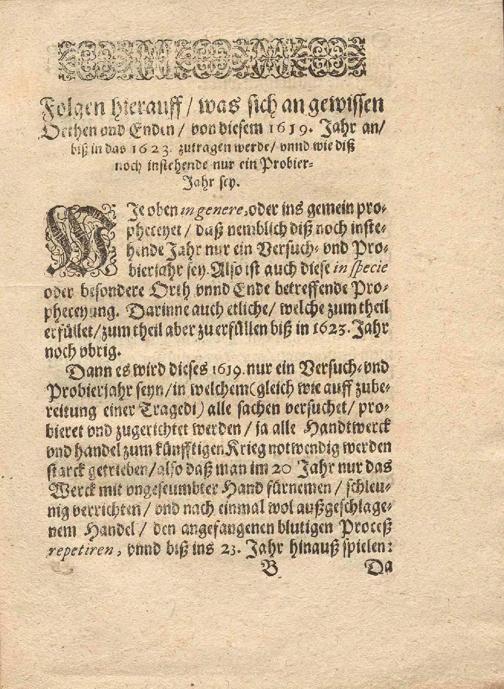 Folgen hierauff / was sich an gewissen
Orthen vnd Enden / von diesem 1619. Jahr an /
biß in das 1623. zutragen werde / vnnd wie diß
noch instehende nur ein Probier-
Jahr sey.
WJe oben in genere, oder ins gemein pro-
pheceyet / daß nemblich diß noch inste-
hende Jahr nur ein Versuch- vnd Pro-
bierjahr sey. Also ist auch diese in specie
oder besondere Orth vnnd Ende betreffende Pro-
pheceyung. Darinne auch etliche / welche zum theil
erfüllet / zum theil aber zu erfüllen biß in 1623. Jahr
noch vbrig.
Dann es wird dieses 1619. nur ein Versuch- vnd
Probierjahr seyn / in welchem (gleich wie auff zube-
reitung einer Tragedi) alle sachen versuchet / pro-
bieret vnd zugerichtet werden / ja alle Handtwerck
vnd handel zum künfftigen Krieg notwendig werden
starck getrieben / also daß man im 20 Jahr nur das
Werck mit vngeseumbter Hand fürnemen / schleu-
nig verrichten / vnd nach einmal wol außgeschlage-
nem Handel / den angefangenen blutigen Proceß
repetiren, vnnd biß ins 23. Jahr hinauß spielen:
B Da